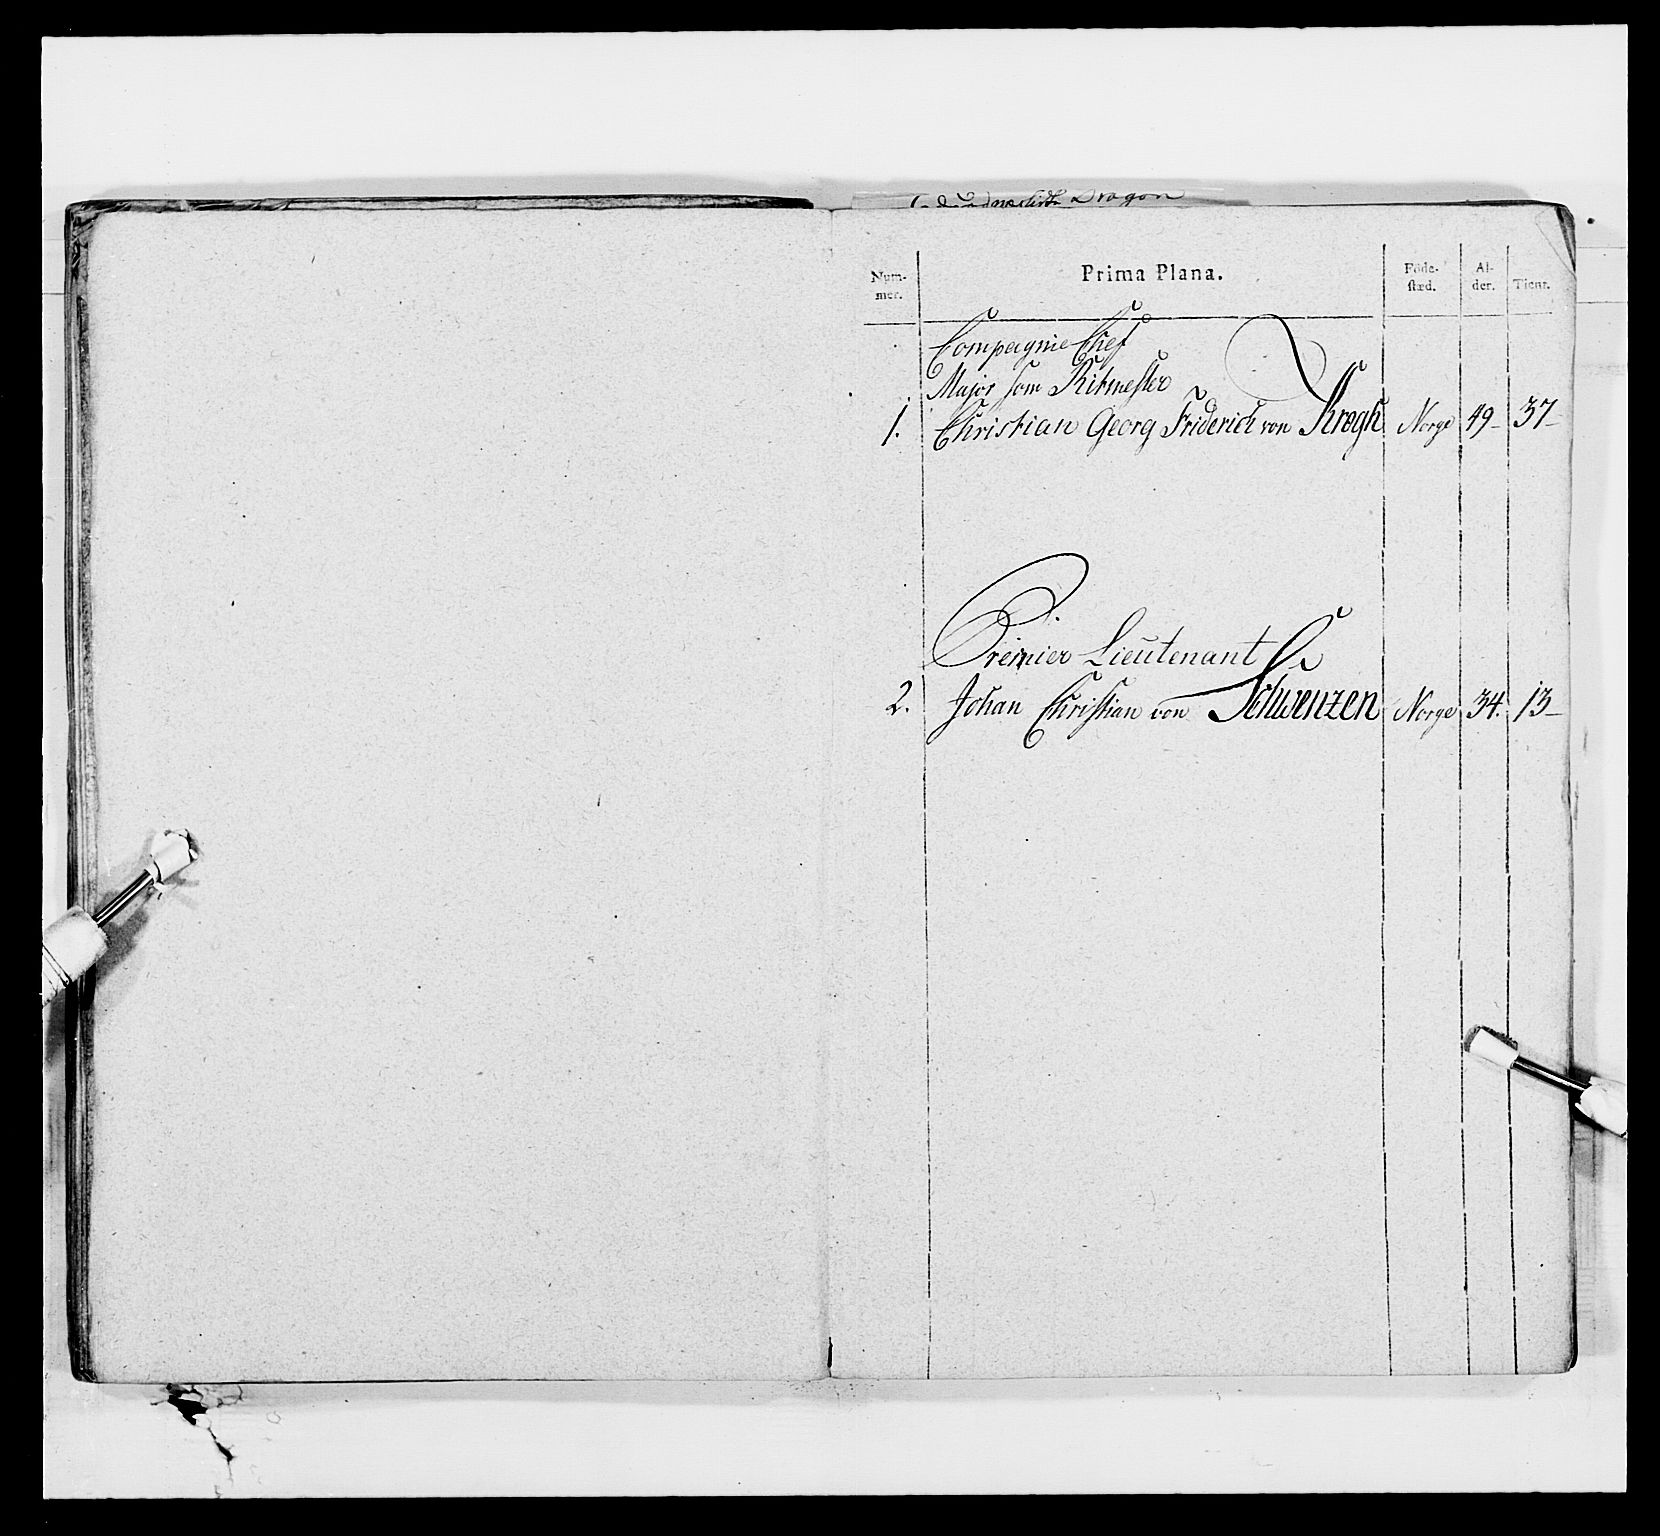 Dragon
Num- Prima Plana. Föde- Al- Tienr.
mer. ſtæd. der.
Compagnie Chef
Major som Ritmester
1. Christian Georg Friderich von Krogh Norge 49 37
Premier Lieutenant
2. Johan Christian von Schwenzen Norge 34. 13